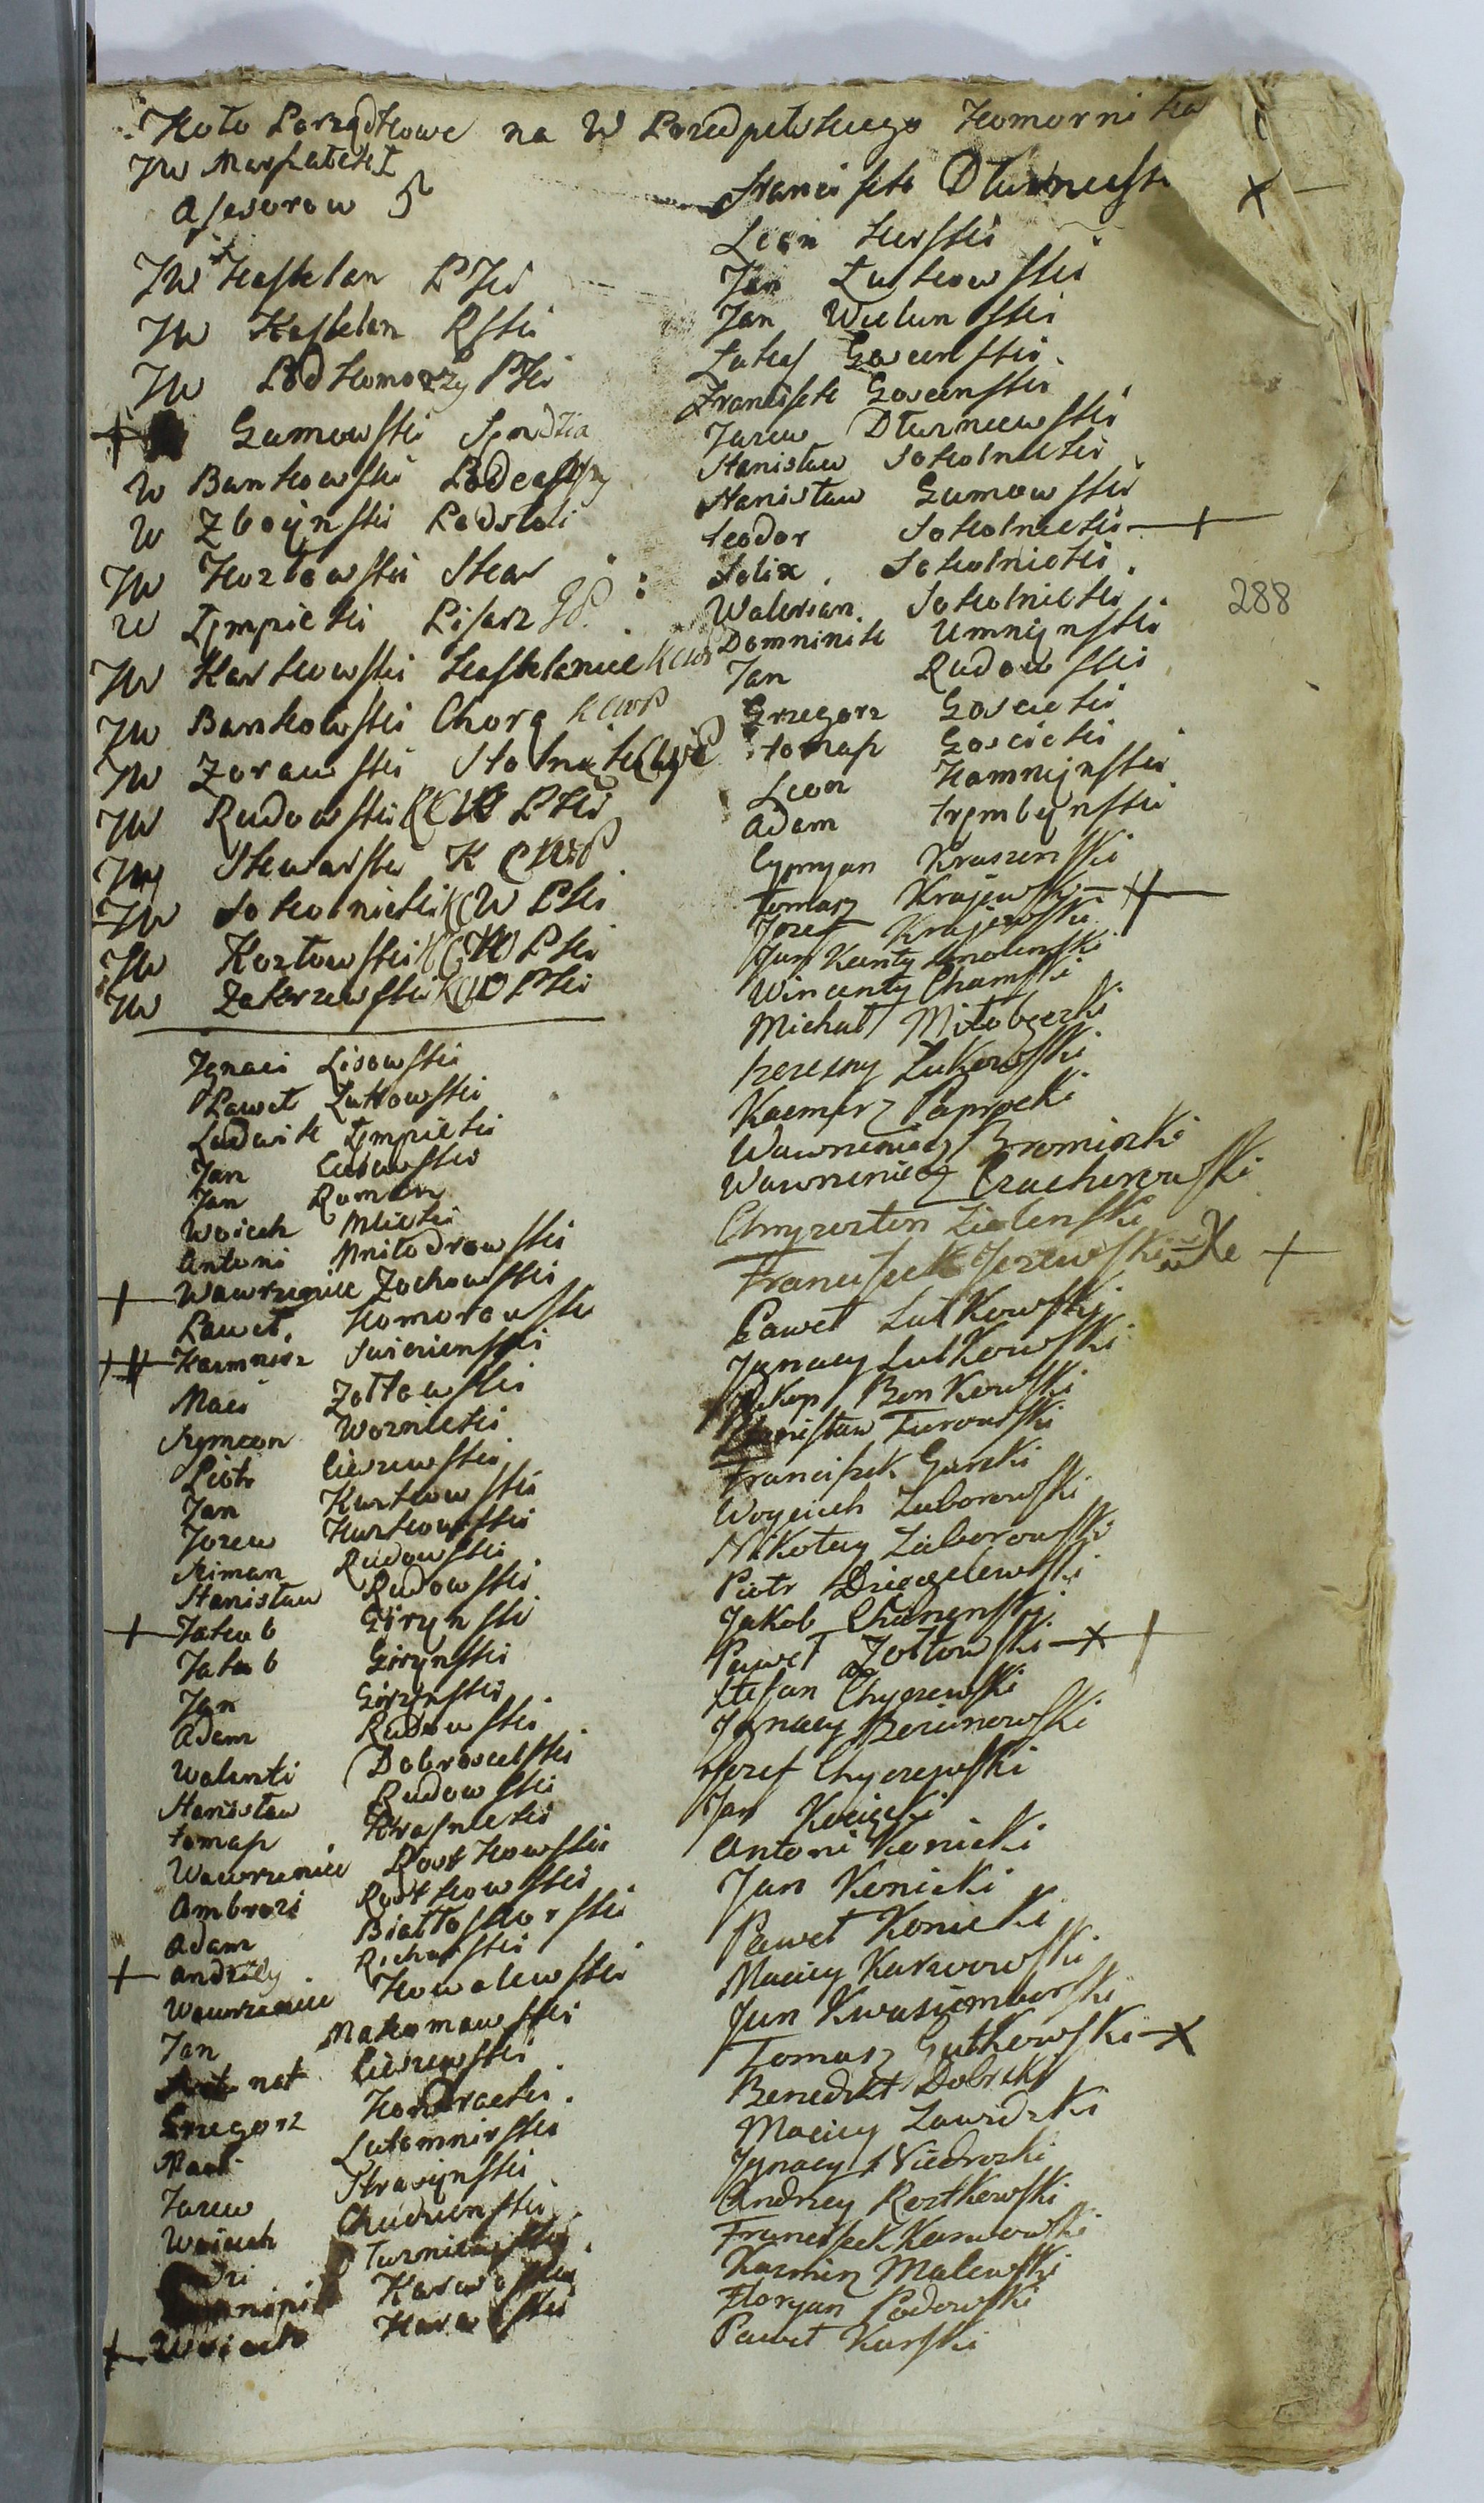 Koło Porządkowe na W Pozedpelskiego Komornika
JW Marszałek
Asesorow 5
JW Kasztelan PKi
JW Kasztelan Rski
JW Podkomorzy PKi
Gumowski Sendzia
W Bankowski Podczaszy
W Zboynski Podstoli
JW Kozłowski Skar
W Zęmpicki Pisarz
JW Karkowski Kasztelanic KCWP
JW Bankowski Chorą KCWP
JW Zorawski Stolnik KCWP
JW Rudowski KCW PKi
JW Skwarski KCWP
JW Sokolnicki KCW PKi
JW Kozłowski KCW PKi
JW Zakrzewski KCW PKi
Ignaci Lisowski
Paweł Lutkowski
Ludwik Zęmpicki
Jan
Jan Roman
Woicech Mlicki
Antoni Miłodrowski
Wawrzęniec Zochowski
Paweł Komorowski
Kazmierz Swiecienski
Maci Zołtowski
Szymeon Woznicki
Piotr Ciszewski
Jan Kurkowski
Jozew Kurkowski
Siman Rudowski
Stanisław Rudowski
Jakub Gorzynski
Jakub Gorzynski
Jan Gorzynski
Adam Rudowski
Walenti Dobroscelski
Stanisław Rudowski
tomasz Kwasnicki
Wawrzeniec Rostkowski
Ambrozi Rostkowski
Adam Białłoskorski
Andrzey Richarski
Wawrzeniec Kowalewski
Jan Makomawski
Ciszewski
Grzegorz Kondracki
Lutomirski
Jozew Strasynski
Woicech Chudzenski
Turnienski
Karwoski
Woicech Karwoski
Franciszek Dłuzniewski
Leon Kurski
Jan Lutkowski
Jan Wielunski
Lukasz Goscenski
Franciszek Goscenski
Jozew Dłuzniewski
Stanisław Sokolnicki
Stanisław Gumowski
teodor Sokolnicki
Felix Sokolnicki
Walerian Sokolnicki
Domninik Umninski
Jan Rudowski
Grzegorz Goscicki
tomasz Goscicki
Leon Kamninski
Adam trzmbynski
Cypryan Kraszenski
Tomasz Krajewski
Jozef Krajewski
Jan Kanty Smolenski
Wincenty Chamski
Michał Miłobęzki
Szczesny Lukowski
Kazmirz Paprocki
Wawrzeniec Bromirski
Wawrzeniec Czachorowski
Chryzoston Zielenski
Franciszek Jezewski
Paweł Lutkowski
Jgnacy Lutkowski
Bonkowski
Stanisław Turowski
Franciszek Gurski
Woyciech Zaborowski
Mikołay Zaborowski
Piotr Dziegelewski
Jakob Chudzenski
Paweł Zołtowski
Stefan Chyczewski
Jgnacy Bozimowski
Jozef Chyczewski
Jan Kocięcki
Antoni Konicki
Jan Konicki
Paweł Konicki
Maciey Karwowski
Jan Kwasiemborski
Tomasz Gutkowski
Benedikt Dobrski
Maciey Zawidzki
Jgnacy Niedrozki
Andrzey Rostkowski
Franciszek Karwowski
Kazmirz Malewski
Floryan Podowski
Paweł Karski
288